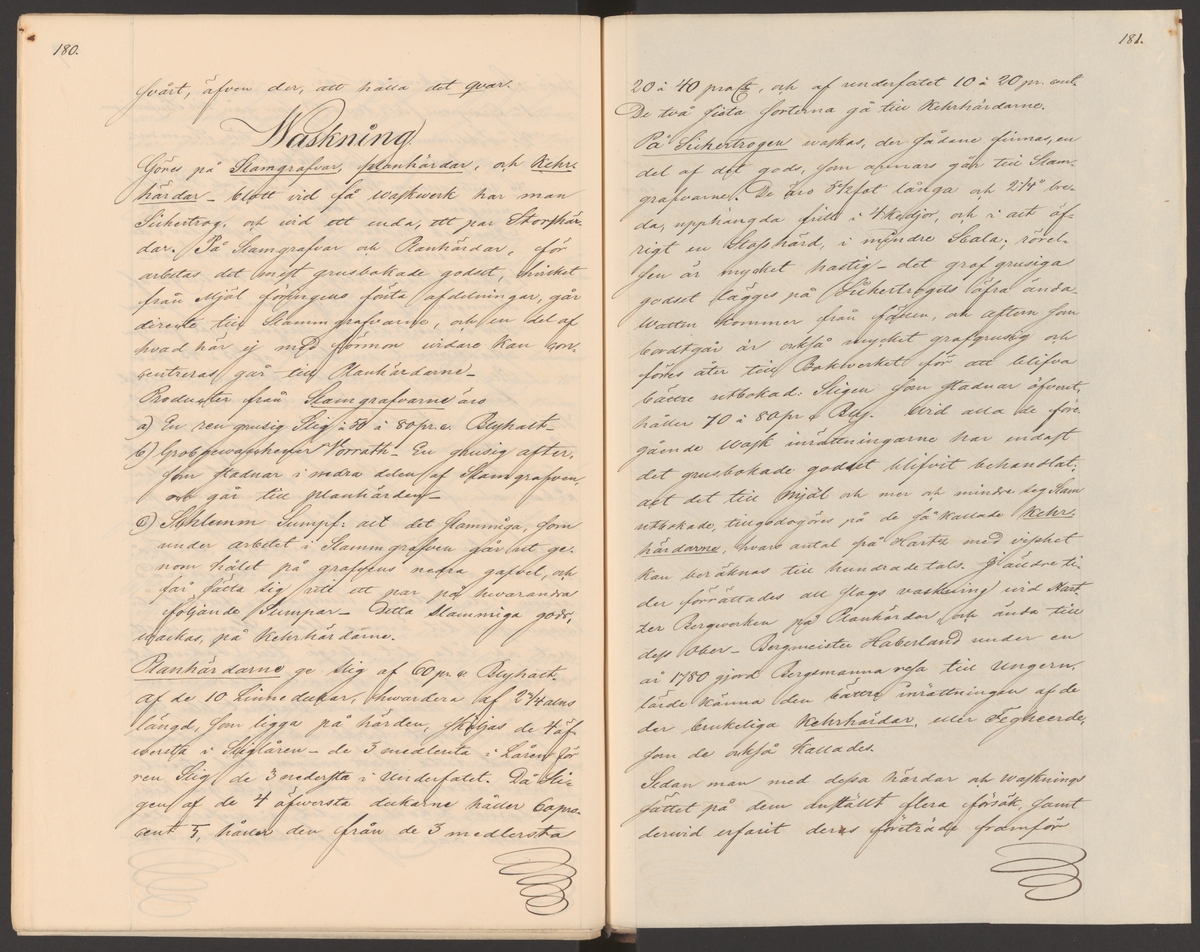 180.
svårt, äfven der, att hålla det qvar.
Waskning
Göres på Slamgrafvar, planhärdar, och Kehr-
härdar_ blott vid få waskwerk har man
Sichertrog, och wid ett enda, ett par Storshär-
dar. På Slamgrafvar och Planhärdar, för
arbetas det mest grusbokade godset, hvilket
från Mjöl föringens första afdelningar, går
directe till Slammgrafvarne, och en del af
hvad här ej med förmon vidare kan con-
sentreras går till Planhärdarne_
Producter från Slamgrafvarne äro
a) En ren grusig Slig à à 80 pr. c. Blyhalt_
b) Grobgewaschener Vorrath_ En grusig after,
som stadnar i nedra delen af Slamgrafven,
och går till planhärden_
c) Schlamm Sumpf: alt det slammiga, som
under arbetet i Slammgrafven går ut ge-
nom hålet på grafvens nedra gafvel, och
får sätta sig uti ett par på hvarandra
följande Sumpar_ Detta slammiga gods,
waskas, på Kehrhärdarne.
Planhärdarne ge slig af 60 pr. c. Blyhalt
af de 10 Linne dukar, hwardera af 2 3/4 alns
längd, som ligga på härden, sköljas de 4 öf-
wersta i Sliglåren_ de 3 medlersta i Låren för
ren Slig de 3 nedersta i Underfatet. Då Sli-
gen af de 4 öfwersta dukarne håller 60 pro-
cent, håller den från de 3 medlersta
181.
20 à 40 procent, och af underfatet 10 à 20 pr. cent.
De två sista sorterna gå till Kehrhärdarne.
På Sichertrogen waskas, der sådane finnas, en
del af det gods, som annars går till Slam-
grafvarne. De äro 5 1/2 fot långa och 2 1/4 bre-
da, upphängda fritt i 4 Kedjor, och i alt öf-
rigt en Stosshärd, i mindre Scala; rörel-
sen är mycket hastig_ det grofgrusiga
godset lägges på Sichertrogets öfra ända_
Watten kommer från sidan, och aftern som
bordtgår är också mycket grofgrusig och
föres åter till Bokwerket för att blifva
bättre utbokad: Sligen som stadnar öfverst,
håller 70 à 80 pr c Bly. Wid alla de före-
gående Wask inrättningarne har endast
det grusbokade godset blifvit behandlat;
alt det till mjöl och mer och mindre seg Slam
utbokade, tillgodogöres på de så kallade Kehr-
härdarne, hvars antal på Hartz med visshet
kan beräknas till hundrade tals. I äldre ti-
der förrättades all slags vaskning wid Hart
zer Bergwerken på Planhärdor och ända till
dess Ober_ Bergmeister Haberland under en
år 1780 gjord Bergsmanna resa till Ungern,
lärde känna den bättre inrättningen af de
der brukeliga Kehrhärdar, eller Fegheerde,
som de också kallades.
Sedan man med dessa härdar och wasknings
sättet på dem anställt flera försök, samt
derwid erfarit deras företräde framför